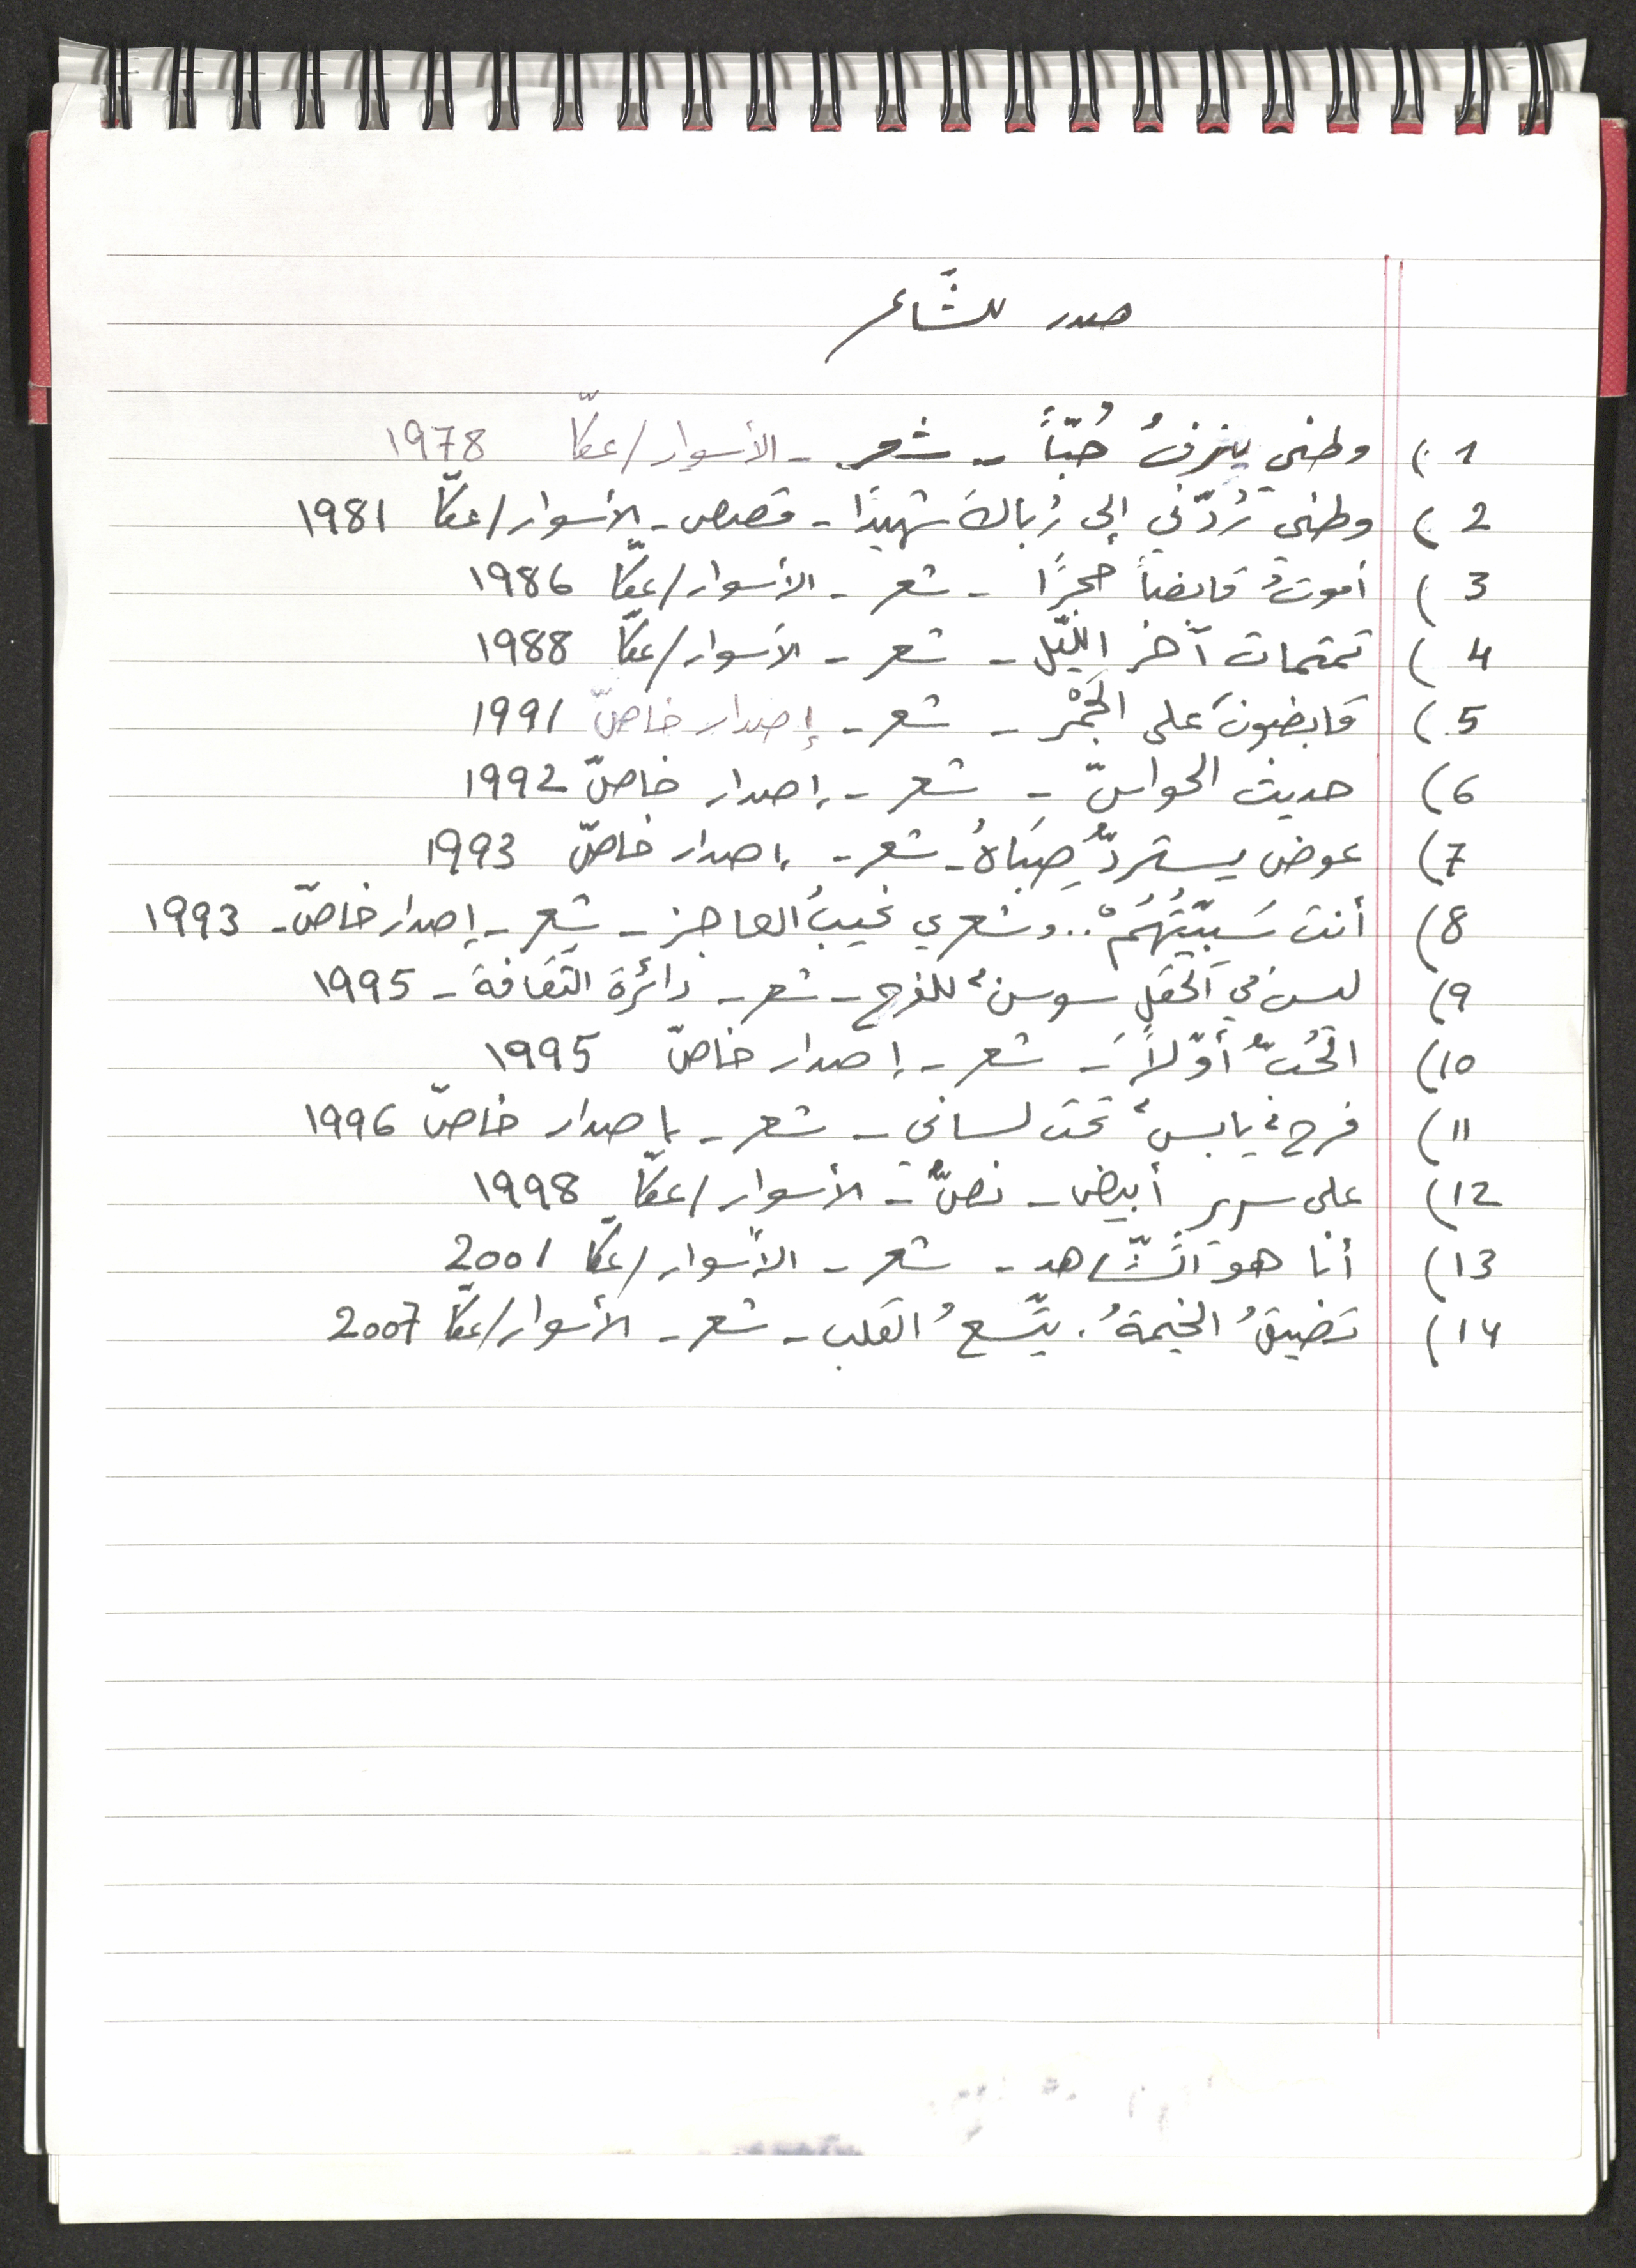 صدر للشّاعر
1) وطني ينزفُ حُبّاً - شعر - الأسوار/عكّا 1978
2) وطني رُدّني إلى رُباكَ شهيدًا - قصص - الأسوار/عكّا 1981
3) أموتُ قابضاً حجرًا - شعر - الأسوار/عكّا 1986
4) تمتمات آخر اللّيل - شعر - الأسوار/عكّا 1988
5) قابضونَ على الجَمْر - شعر - إصدار خاصّ 1991
6) حديث الحواسّ - شعر - إصدار خاصّ 1992
7) عوض يستردُّ صِبَاهُ - شعر - إصدار خاصّ 1993
8) أنت سَبَيْتَهُمْ .. وشعري نحيبُ العاجز - شعر - إصدار خاصّ - 1993
9) ليس في الحقلِ سوسنٌ للفرح - شعر - دائرة الثّقافة - 1995
10) الحُبُّ أوّلاً - شعر - إصدار خاصّ 1995
11) فرحٌ يابسٌ تحت لساني - شعر - إصدار خاصّ 1996
12) على سرير أبيض - نصٌّ - الأسوار/عكّا 1998
13) أنا هو الشّاهد - شعر - الأسوار/عكّا 2001
14) تضيقُ الخيمةُ. يتّسعُ القلب - شعر - الأسوار/عكّا 2007